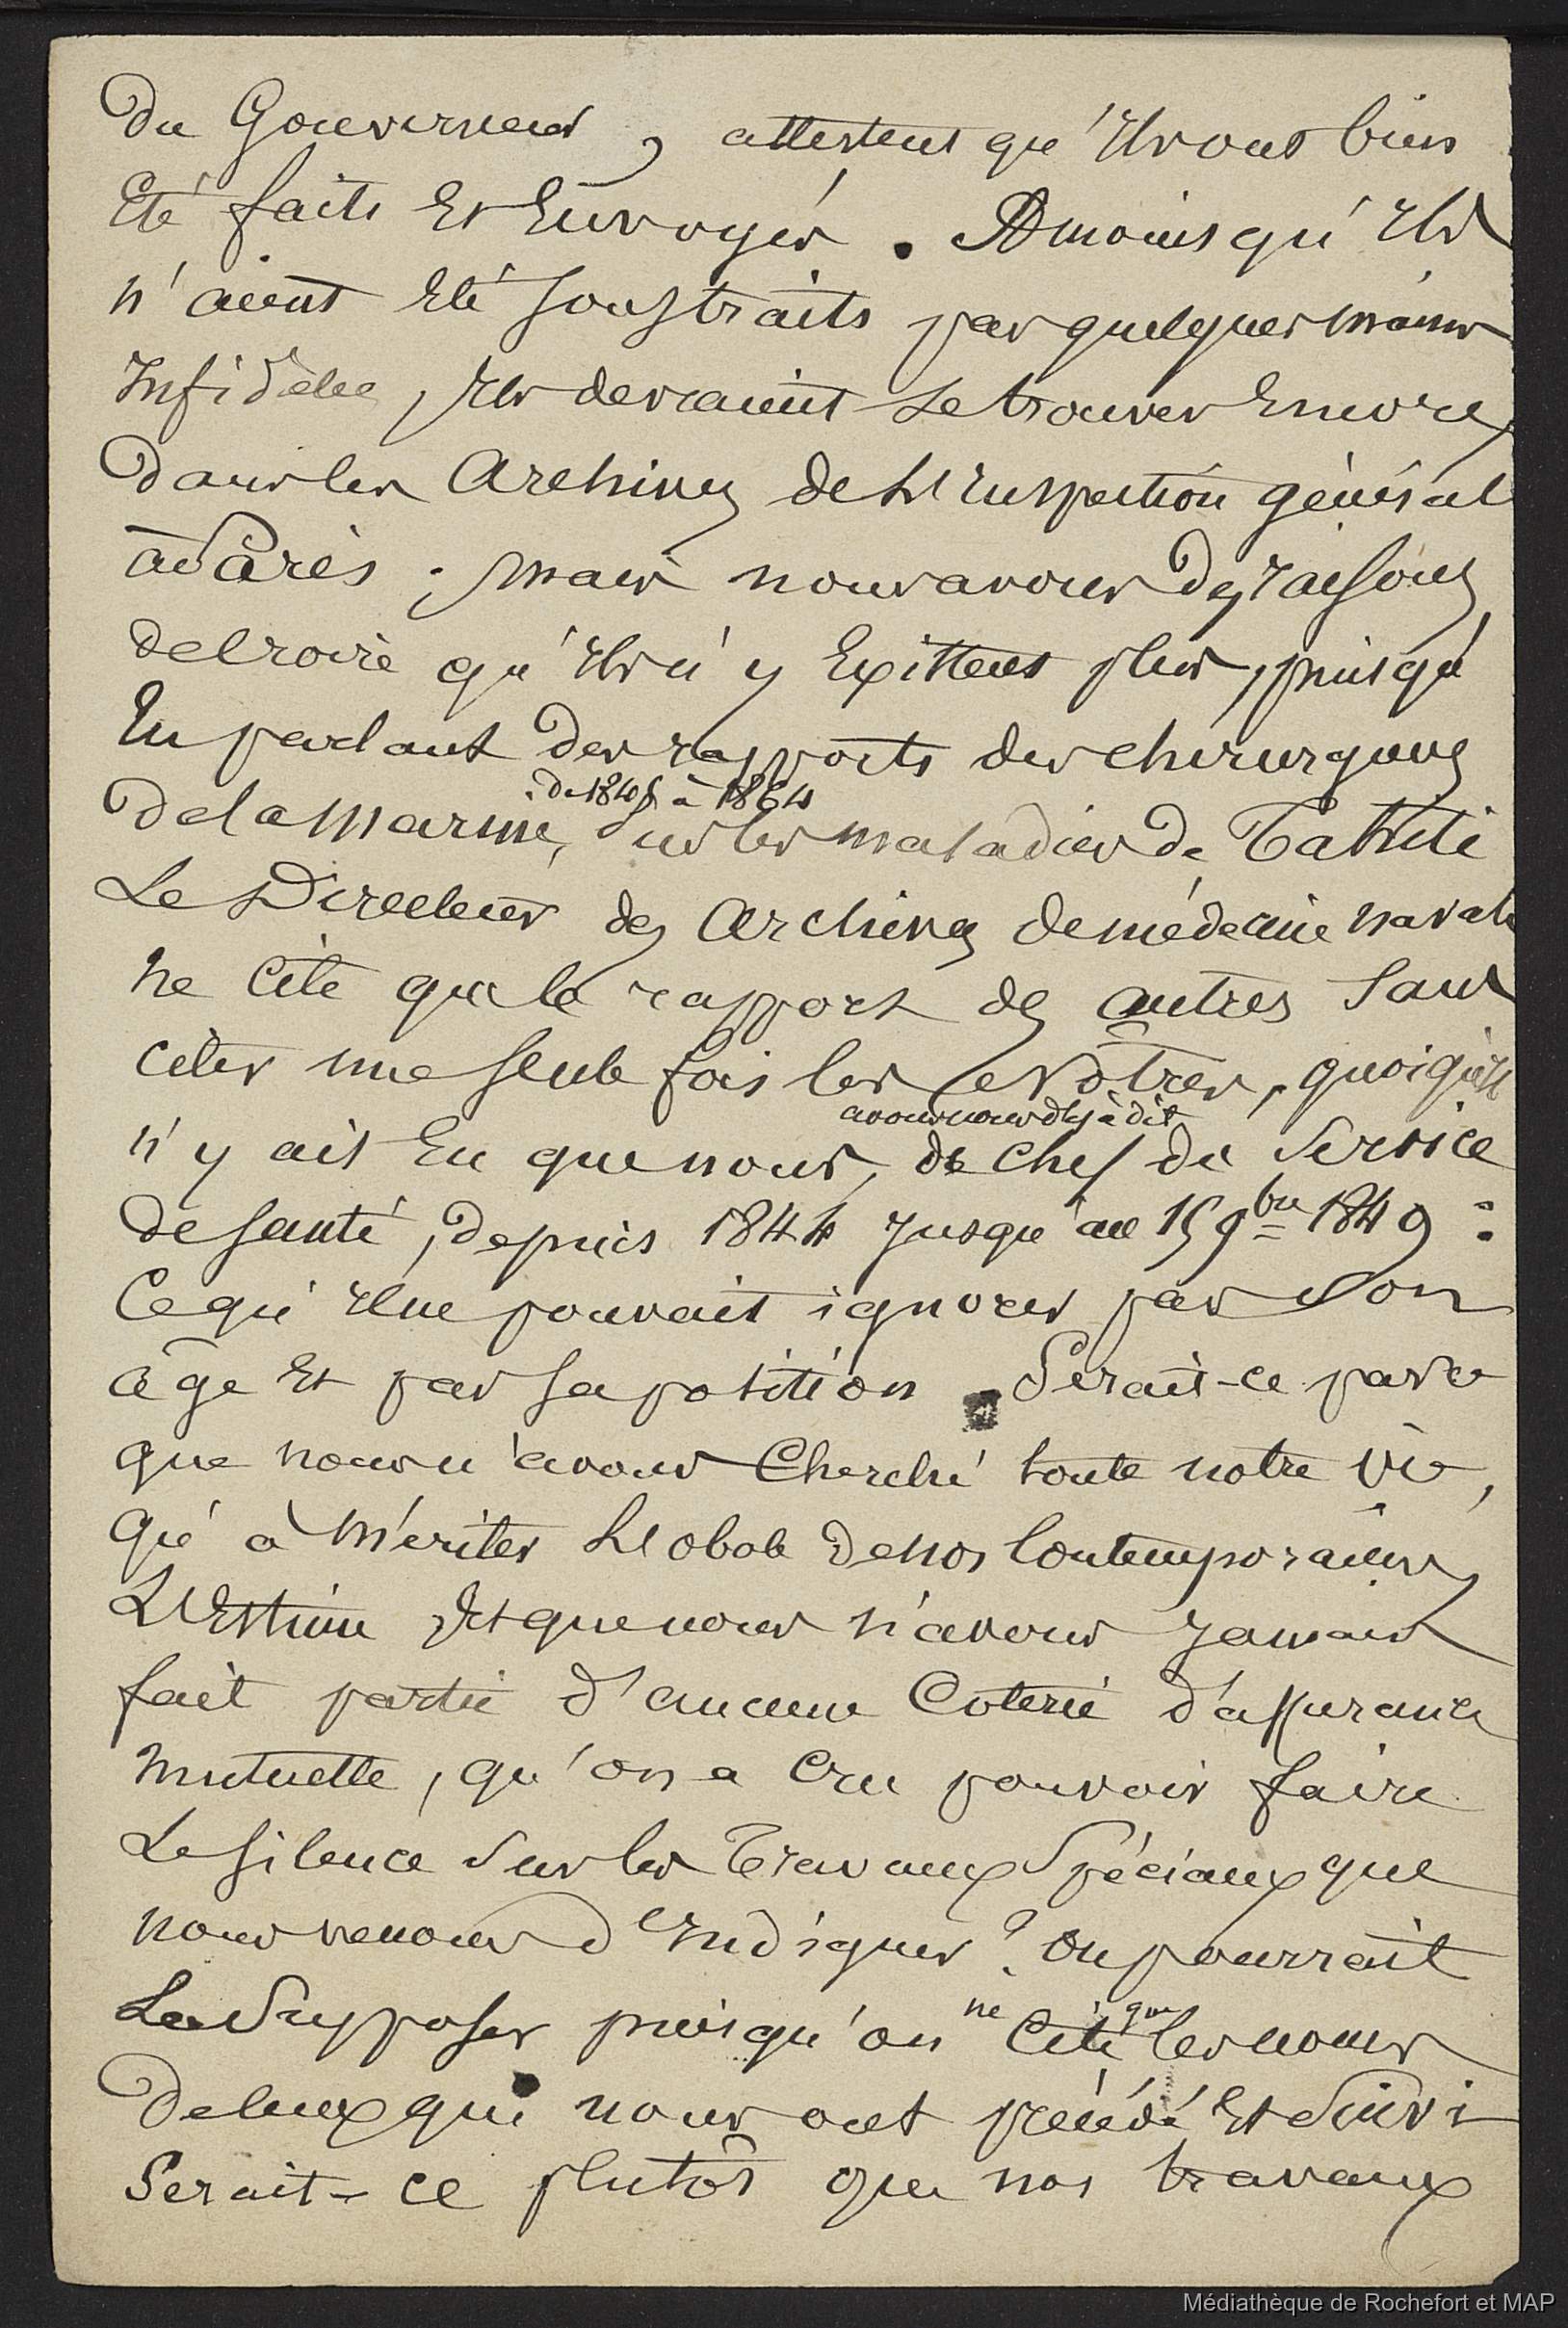 Du Gouverneur, attestent qu'Ils ont bien
Eté faits Et Envoyés. A moins qu'Ils
n'aient Eté soustraits par quelques mains
Infidèles, Ils devraient se trouver Encore
Dans les Archives de L'Inspection général
à Paris. Mais nous avons des raisons
de croire qu'Ils n'y Existent plus, puisqu'
En parlant des rapports des chirurgiens
de 1845 à 1864
De la Marine, sur les maladies de Tahiti
Le Directeur des Archives de médecine navale
ne Cite que le rapport des autres sans
citer une seule fois les Nôtres, quoiqu'il
avons nous déjà dit
n'y ait Eu que nous, de Chef du Service
de santé, Depuis 1844 Jusqu'au 15 9bre 1849:
Ce qu'Il ne pouvait ignorer par son
âge Et par sa position. Serait-ce parce
que nous n'avons Cherché toute notre vie,
qu'à Mériter L'obole de nos Contemporains
L'Estime Et que nous n'avons Jamais
fait partie d'aucune Coterie d'assurance
mutuelle, qu'on a Cru pouvoir faire
Le silence sur les Travaux Spéciaux que
nous venons d'Indiquer? On pourrait
ne que
Le Supposer puisqu'on Cite les noms
De Ceux qui nous ont précédé Et Suivi
Serait-ce plutôt que nos travaux
Médiathèque de Rochefort et MAP